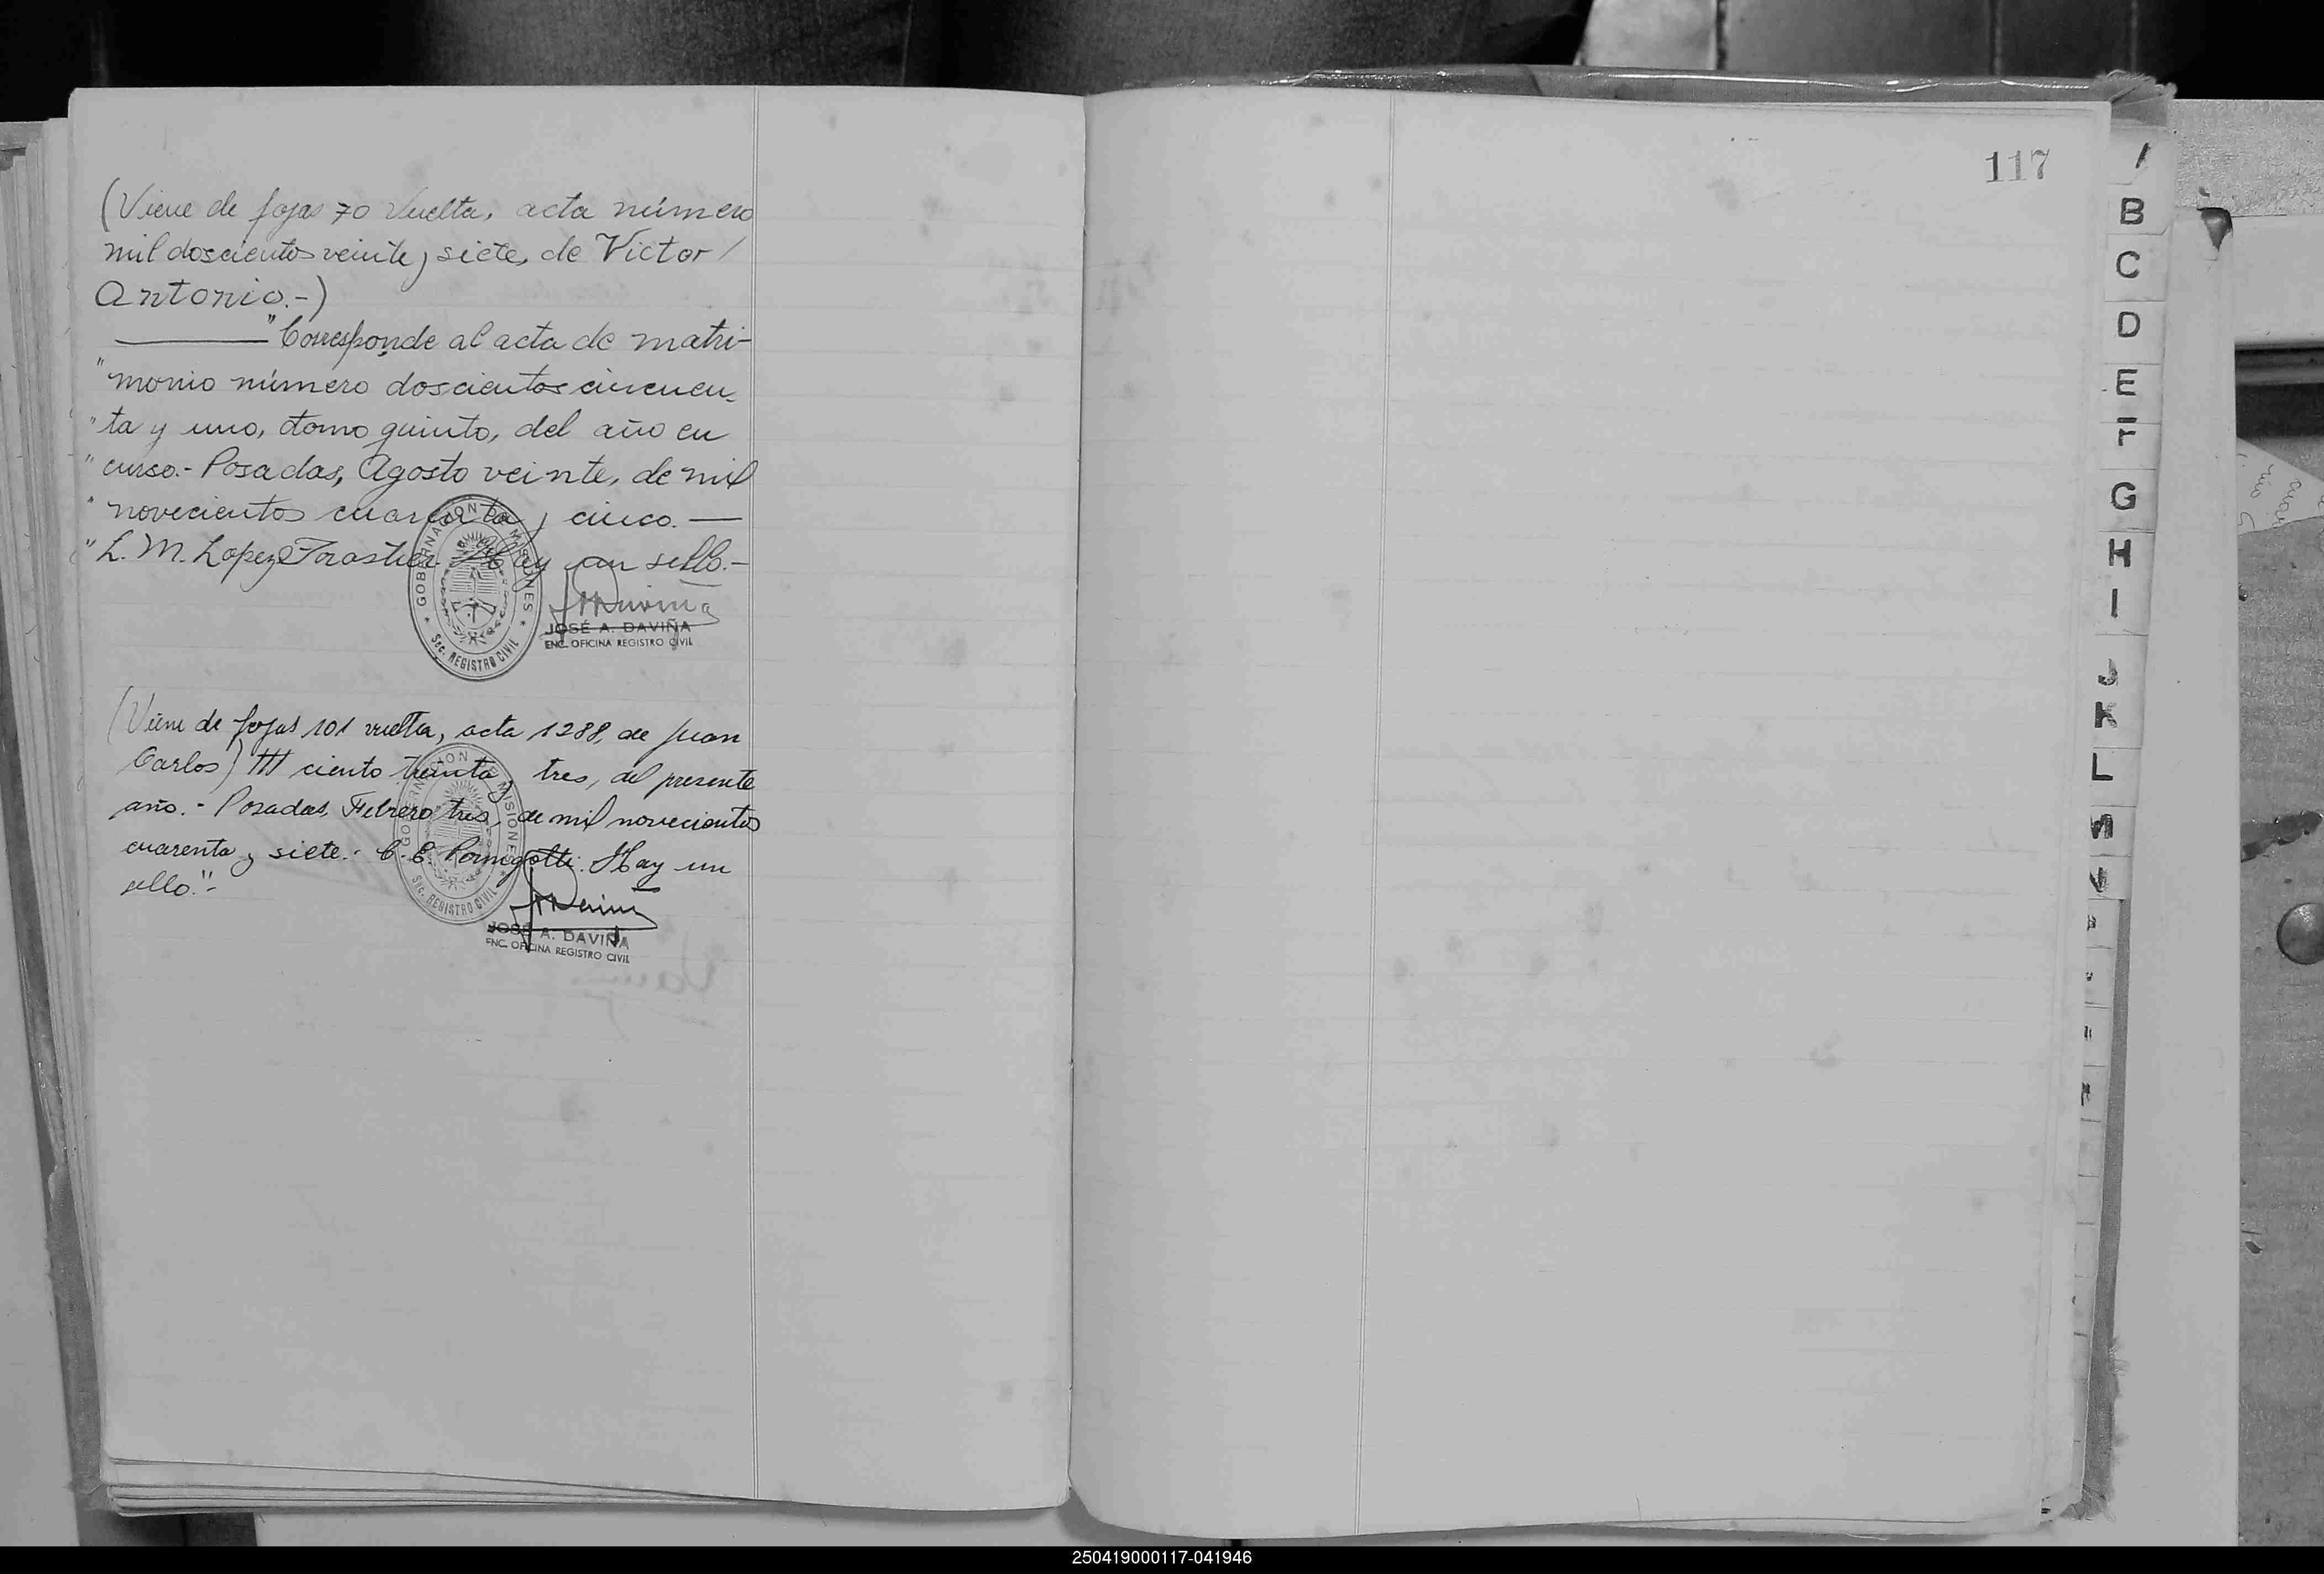 (Viene de fojas 70 vuelta, acta número
mil doscientos veinte y siete, de Victor /
Antonio.-)
"Corresponde al acta de matri-
"monio número doscientos cincuen-
"ta y uno, tomo quinto, del año en
"curso.- Posadas, Agosto veinte, de mil
"novecientos cuarenta y cinco.—
"L. M. Lopez Forastier. Hay un sello.-
GOBERNACION DE MISIONES
Sec. REGISTRO CIVIL
JOSÉ A. DAVIÑA
ENC. OFICINA REGISTRO CIVIL
(Viene de fojas 101 vuelta, acta 1288, de Juan
Carlos) /// ciento treinta y tres, del presente
año.- Posadas, Febrero tres, de mil novecientos
cuarenta y siete.- C. E. Hay un
sello."-
GOBERNACION DE MISIONES
Sec. REGISTRO CIVIL
JOSÉ A. DAVIÑA
ENC. OFICINA REGISTRO CIVIL
117
B
C
D
E
F
G
H
I
J
K
L
M
N
250419000117-041946